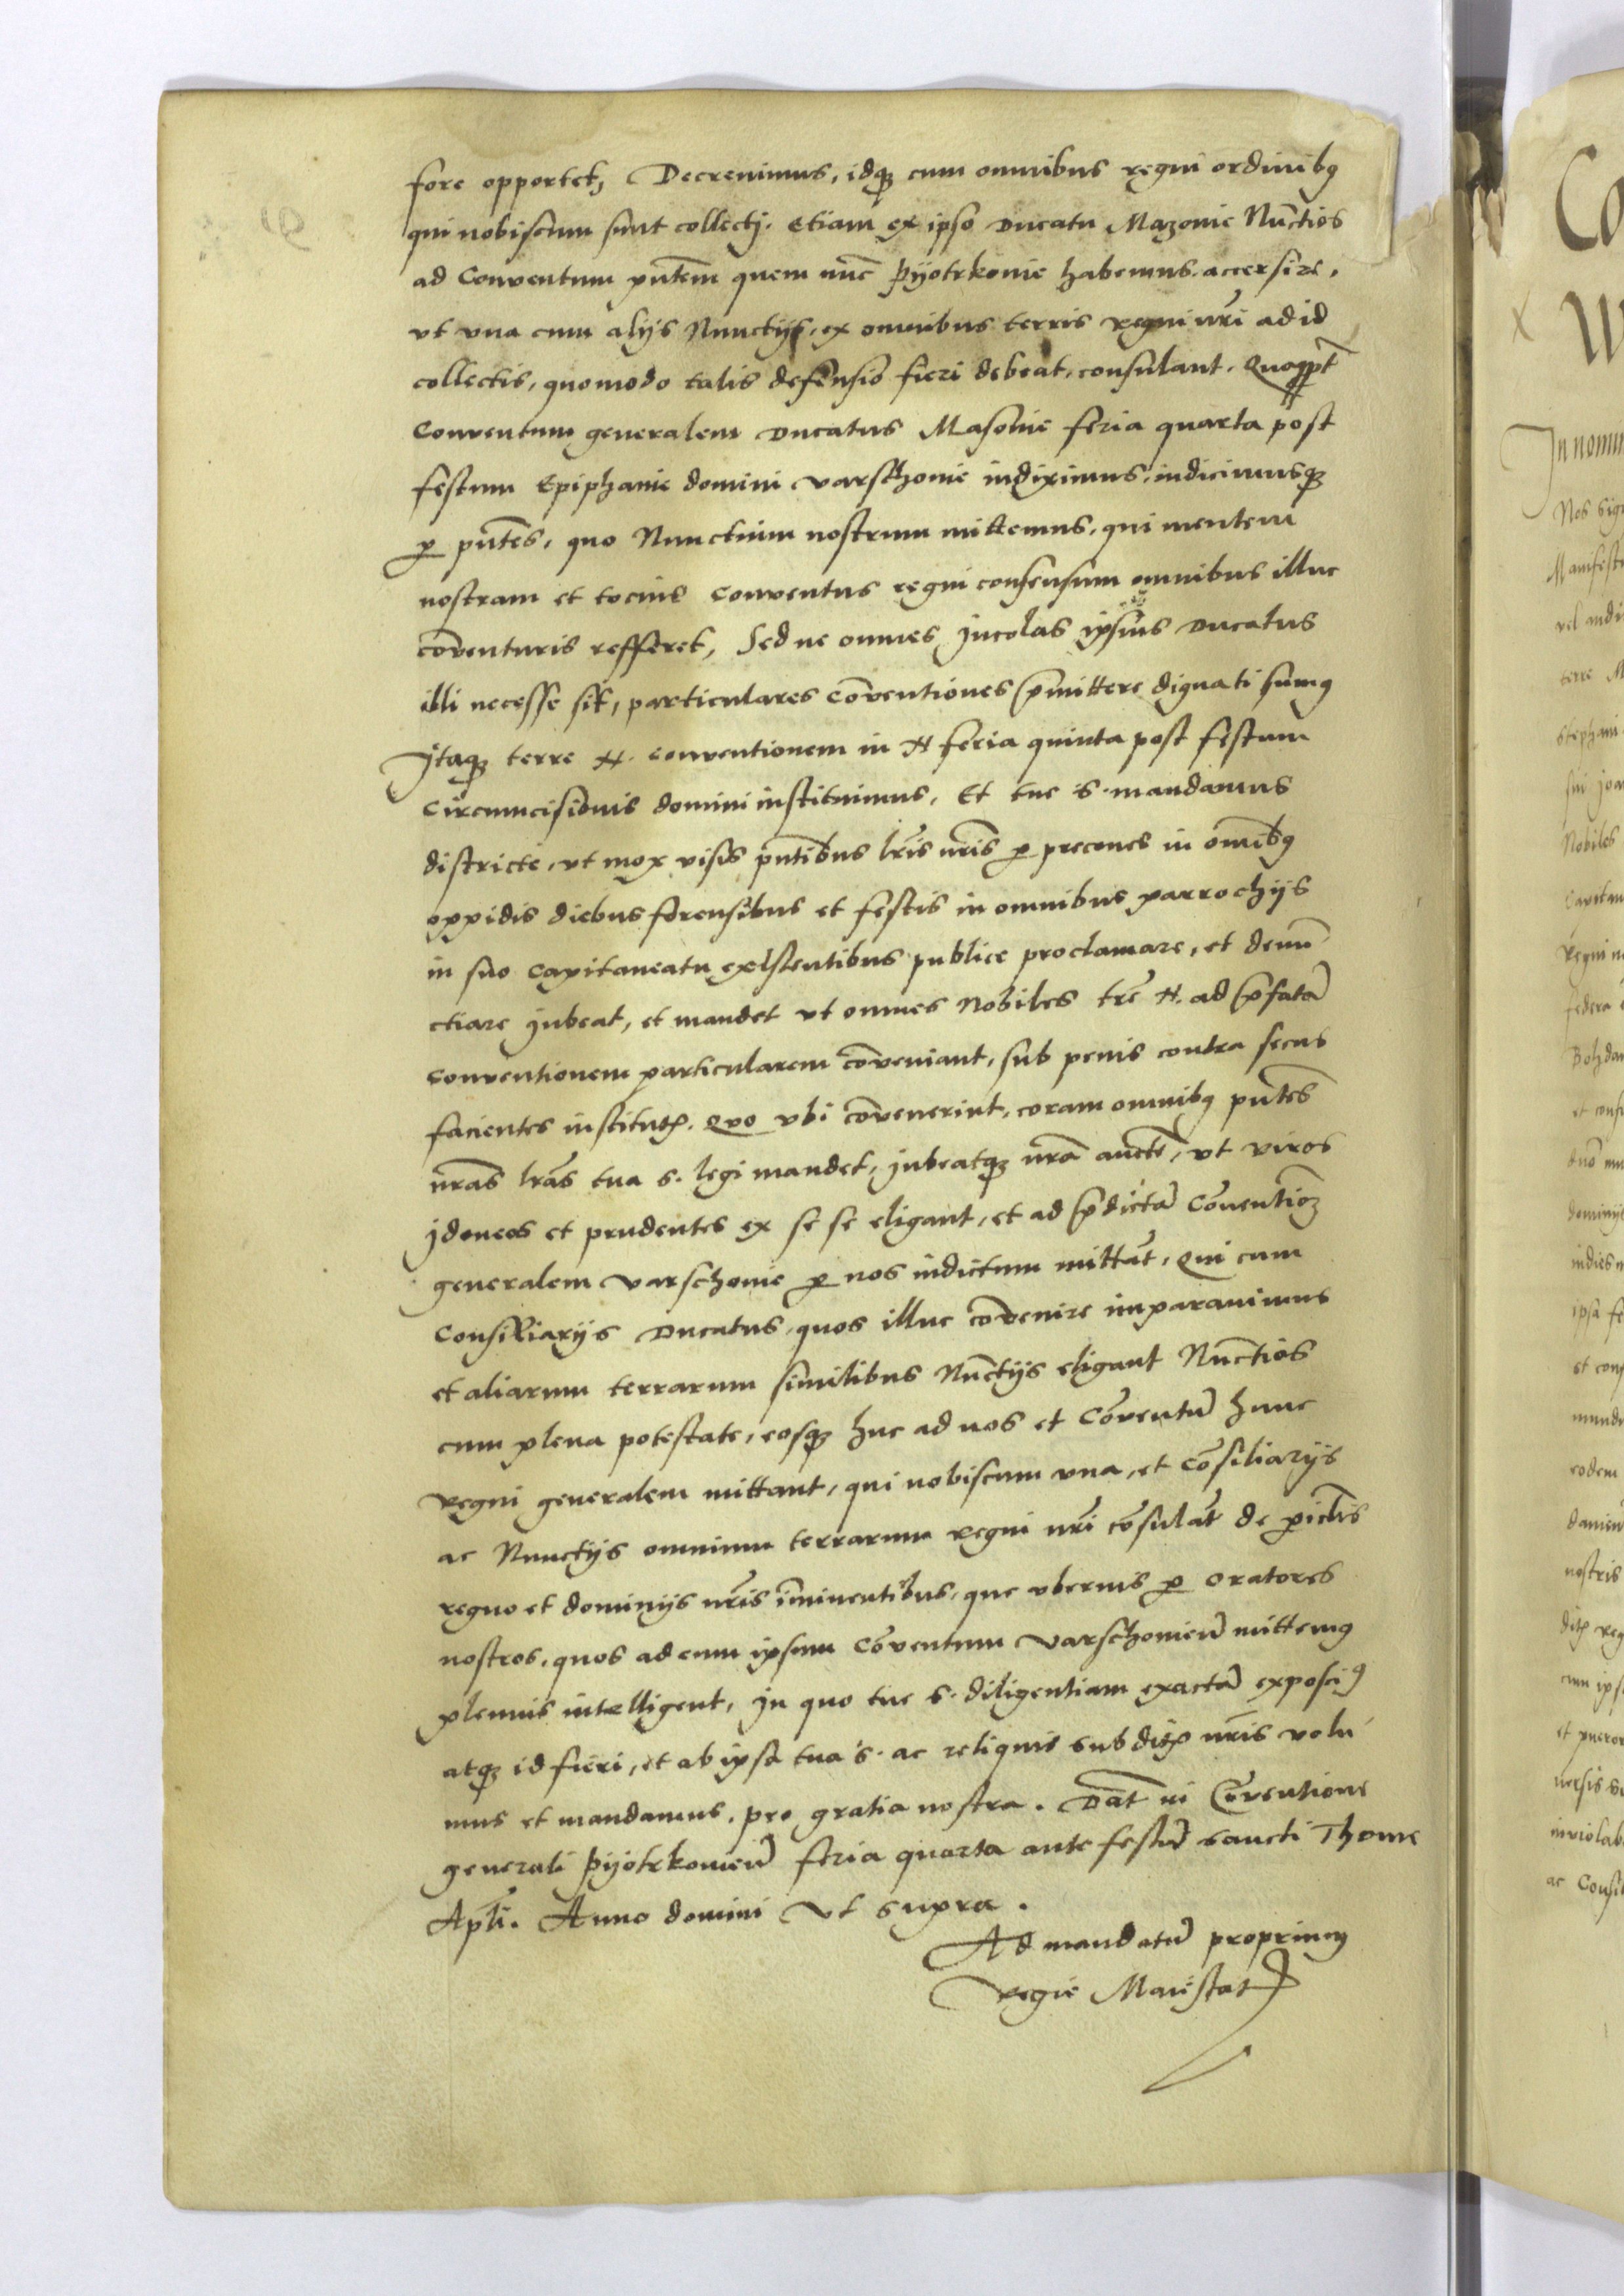 fore opportet, Decrevimus, idq́ꝫ cum omnibus regni ordinibꝯ
qui nobiscum sunt collectj. Etiam ex ipso Ducatu Mazovie Nunctios
ad Conventum pñtem quem nũc Pyotrkovie habemus accersire,
vt vna cum alijs Nunctijs, ex omnibus terris regni nr̃i ad id
collectis, quomodo talis defensio fieri debeat, consulant. Quaꝓpt̃
Conventum generalem Ducatus Masovie feria quarta post
festum Epiphanie domini Varschovie indiximus, indicimusqꝫ
ꝑ pñtes, quo Nunctium nostrum mittemus, qui mentem
nostram et tocius Conventus regni consensum omnibus illuc
cõventuris refferet, Sed ne omnes jncolas ipsius Ducatus
illi necesse sit, particulares Cõventiones p̃mittere dignati sumꝯ
Jtaqꝫ terre N. conventionem in N feria quinta post festum
Circumcisionis domini instituimus, Et tue S. mandamus
districte, vt mox visis pñtibus lr̃is nr̃is ꝑ precones in om̃ibꝯ
oppidis diebus forensibus et festis in omnibus parrochijs
in suo Capitaneatu existentibus publice proclamare, et denũ
ctiare jubeat, et mandet vt omnes Nobiles tr̃e N. ad p̃fatã
Conventionem particularem cõveniant, sub penis contra secus
facientes institutꝭ. Quo vbi cõvenerint, coram omnibꝯ pñtes
nr̃as lr̃as tua S. legi mandet, jubeatqꝫ nr̃a aucte̅, vt viros
jdoneos et prudentes ex se se eligant, et ad p̃dictã Cõventioꝫ
generalem Varschovie ꝑ nos indictum mittãt, Qui cum
Consiliarijs Ducatus, quos illuc cõvenire imparavimus
et aliarum terrarum similibus Nũctijs eligant Nũctios
cum plena potestate, eosqꝫ huc ad nos et Cõventũ hunc
Regni generalem mittant, qui nobiscum vna, et Cõsiliarijs
ac Nunctijs omnium terrarum regni nr̃i cõsulãt de ꝑiclis
regno et dominijs nr̃is im̃inentibus, que vberius ꝑ oratores
nostros, quos ad eum ipsum Cõventum Varschovieñ mittemꝯ
plenius intelligent, jn quo tue S. diligentiam exactã exposcimꝯ
atqꝫ id fieri, et ab ipsa tua S. ac reliquis subditꝭ nr̃is volu
mus et mandamus, pro gratia nostra. Dat̃ in Cõventione
generali Pyotrkovieñ feria quarta ante festũ sancti Thome
Apl̃i. Anno domini vt supra.
Ad mandatũ propriuꝫ
Regie Maiestatꝭ